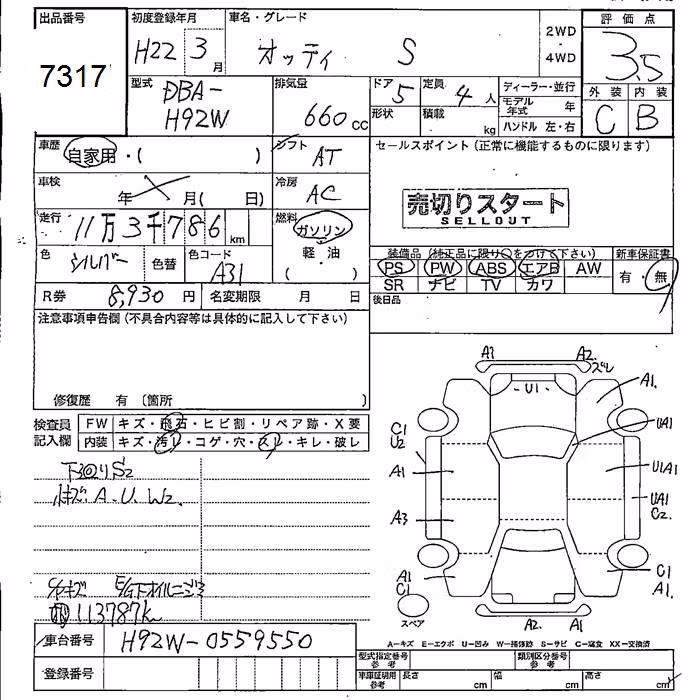 出品番号
7317
初度登録年月
H22 3月
車名・グレード
オッティ S
2WD
・
4WD
評価点
3.5
外装 内装
C B
型式
DBA-
H92W
排気量
660cc
ドア 5
形状
定員 4人
積載 kg
ディーラー・並行
モデル年式 年
ハンドル 左・右
車歴
自家用・( )
シフト
AT
セールスポイント(正常に機能するものに限ります)
車検
年 月( 日)
冷房
AC
売切りスタート
SELLOUT
走行
11万3千786km
燃料
ガソリン
軽・油
( )
色
シルバー
色替
色コード
A31
装備品(純正品に限り○をつけて下さい)
PS PW ABS エアB AW
SR ナビ TV カワ
新車保証書
有・無
R券 8,930円
名変期限 月 日
後日品
注意事項申告欄(不具合内容等は具体的に記入して下さい)
修復歴 有〔箇所 〕
検査員
記入欄
FW キズ・飛石・ヒビ割・リペア跡・X要
内装 キズ・汚レ・コゲ・穴・スレ・キレ・破レ
下回りS2
A.U.W2.
E/G下オイルニジミ
113787k
車台番号
H92W-0559550
登録番号
A1
A2
ズレ
U1
A1.
C1
U2
UA1
A1
U1A1
UA1
C2
A3
A1
C1
C1
A1.
スペア
A2
A1
A-キズ E-エクボ U-凹み W-補修跡 S-サビ C-腐食 XX-交換済
型式指定番号
参考
類別区分番号
参考
車庫証明用
参考
長さ cm
幅 cm
高さ cm